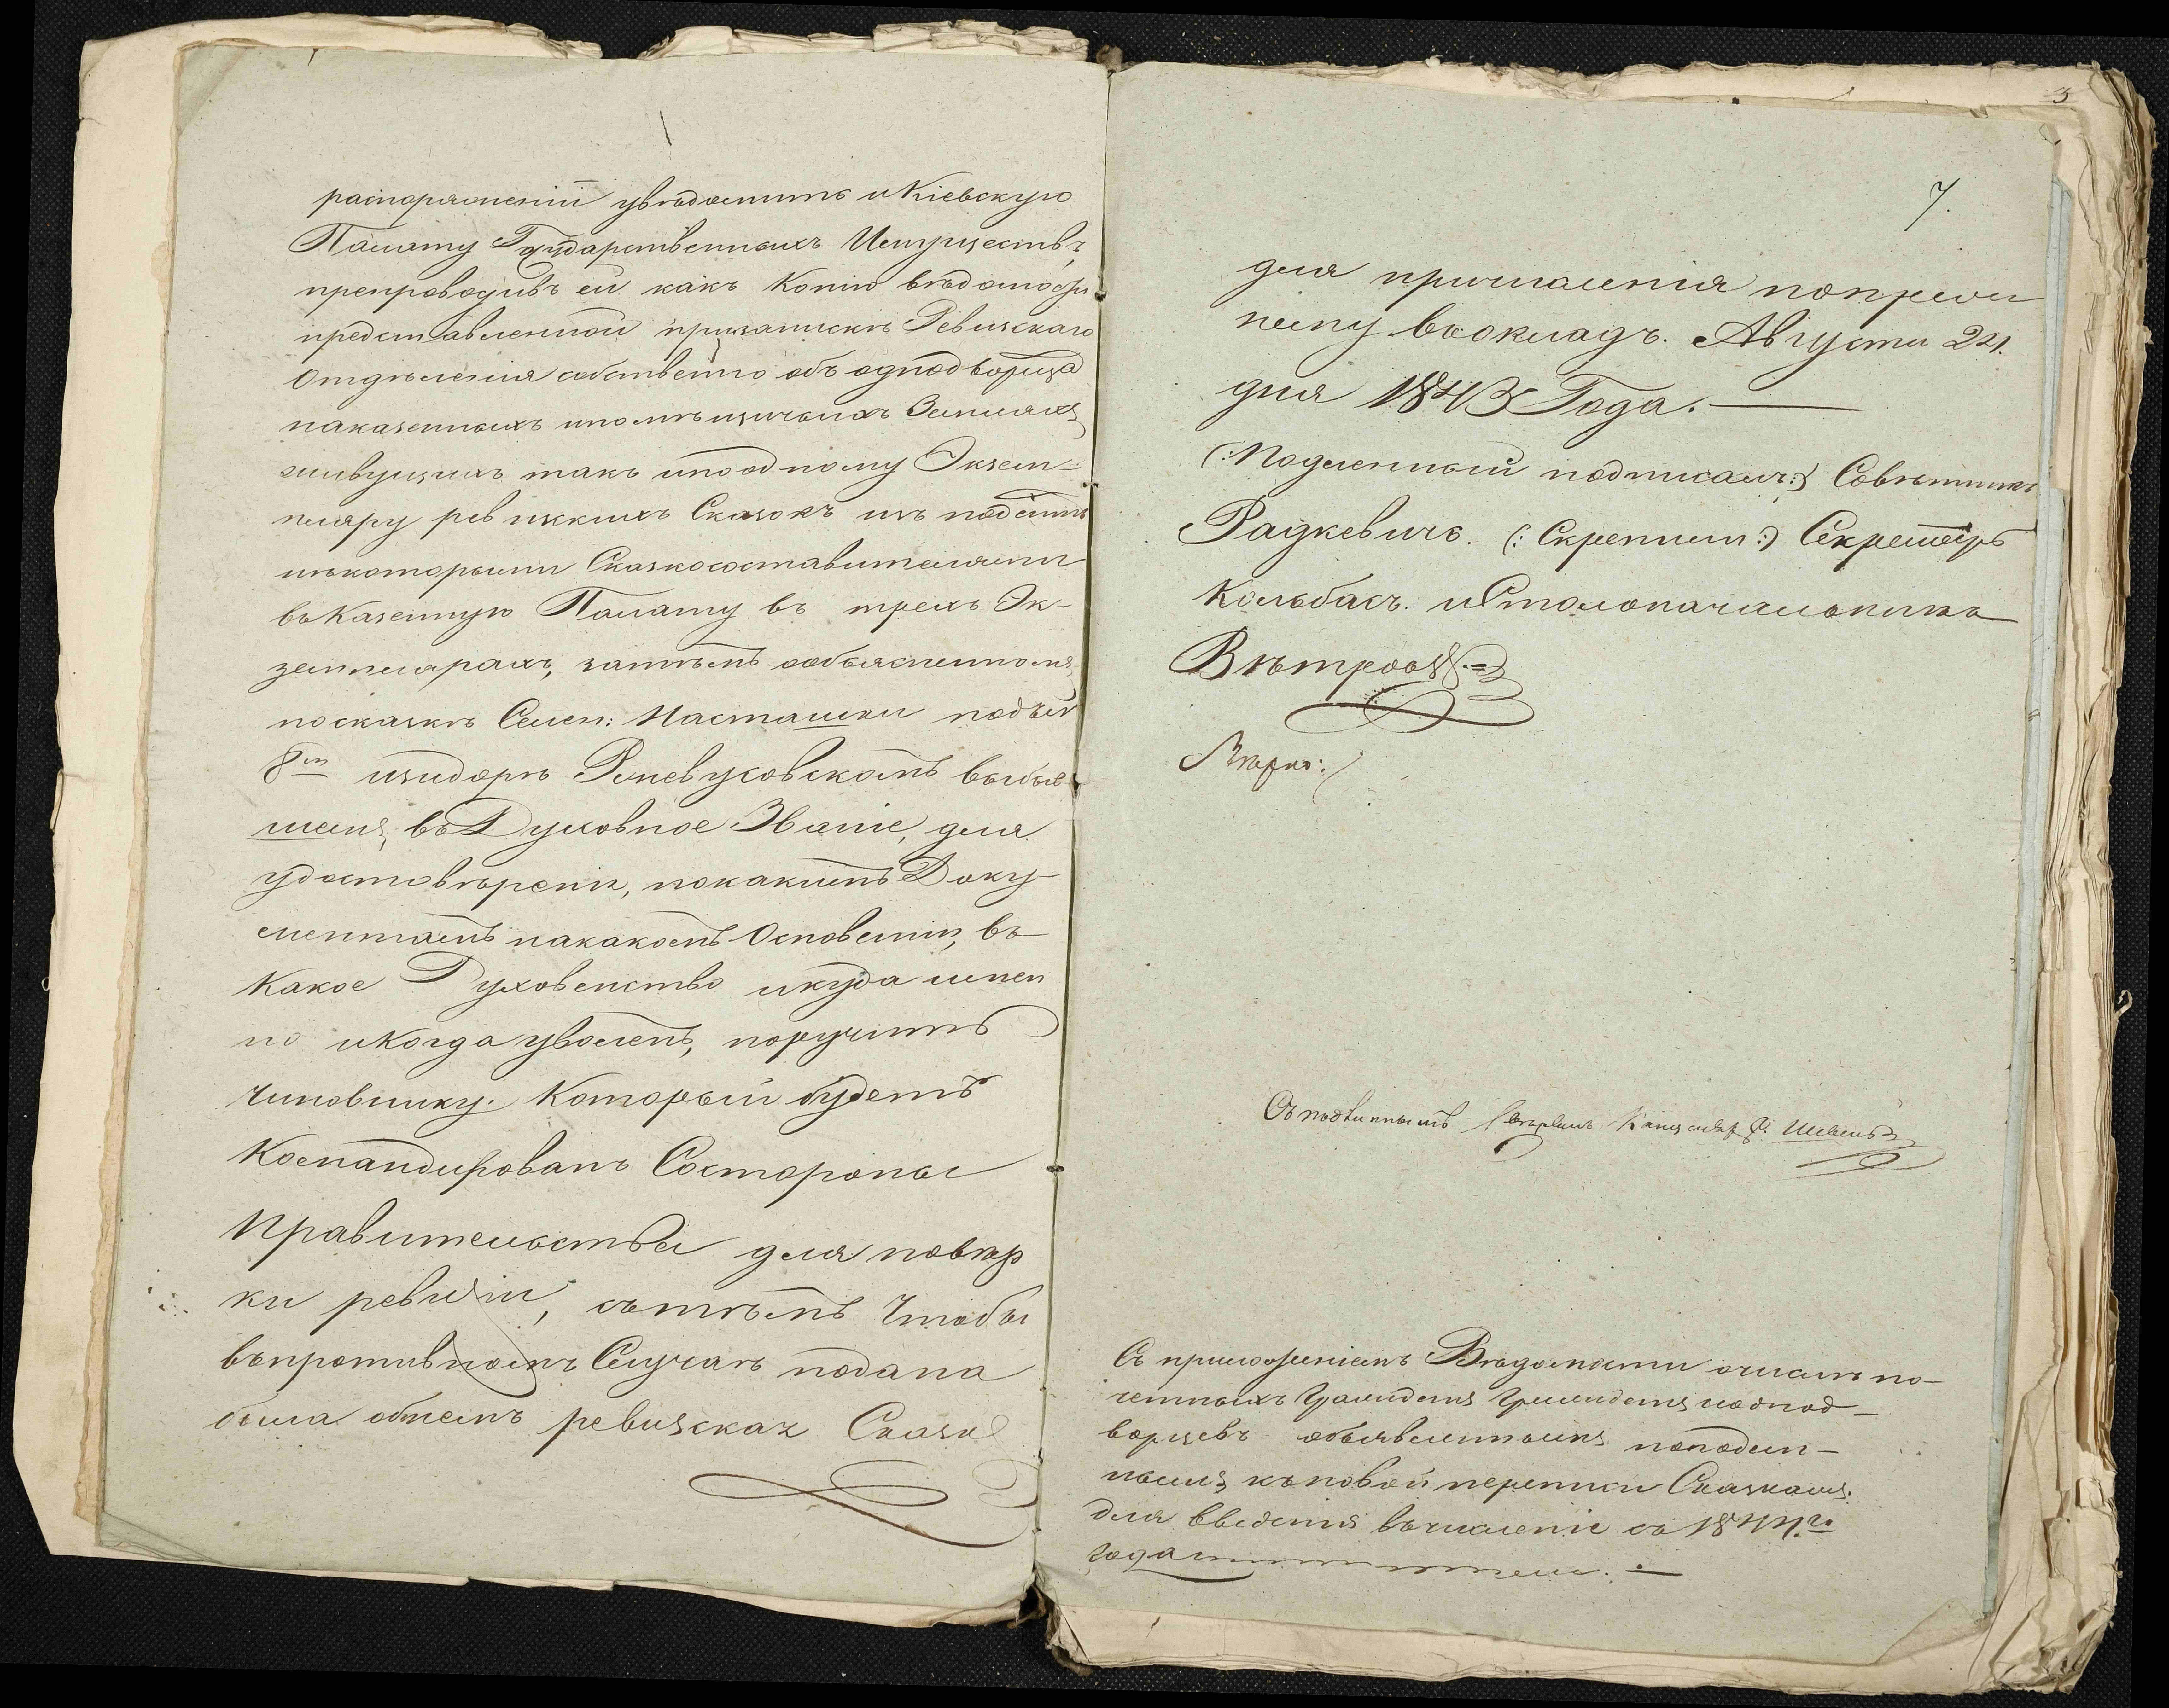 распоряженій увѣдомить и Кіевскую
Палату Государственныхъ Имуществъ,
препроводивъ ей какъ Копію вѣдомости
представленной призапискѣ Ревизскаго
Отдѣленія собственно объ однодворцахъ
наказенныхъ ипомѣщичьихъ Земляхъ
живущихъ такъ ипо одному Экзем-
пляру ревизскихъ Сказокъ изъ поданныхъ
нѣкоторыми Сказкосоставителями
въ Казенную Палату въ трехъ Эк-
земплярахъ, затѣмъ обьясненномъ
посказкѣ Селен: Насташки подъ №
8м изидорѣ Выбыв-
шемъ въ Духовное Званіе, для
удостовѣренія, покакимъ Доку-
ментамъ накакомъ Основаніи, въ
какое Духовенство икуда имен
но икогда уволенъ, поручить
Чиновнику Который будетъ
Командированъ Состороны
Правительства для повѣр
ки ревизіи, сътѣмъ Чтобы
въпротивномъ Случаѣ подана
была объ немъ ревизская Сказка
3
7.
для причисленія попрежн
нему въокладъ. Августа 24.
дня 1843 Года.
(:Подленный подписалъ:) Совѣтникъ
Радкевичъ. (:Скрепилъ:) Секретарь
Кольбасъ. и Столоначальникъ
Вѣтровъ
Вѣрно:
Съ подлиннымъ свѣрялъ Канцеляр.
Съ приложеніемъ Вѣдомости очислѣ по-
четныхъ Гражданъ Гражданъ иоднод-
ворцевъ объявленныхъ поподан-
нымъ къновой переписи Сказкамъ.
для введенія въчисленіе съ 1844.го
года